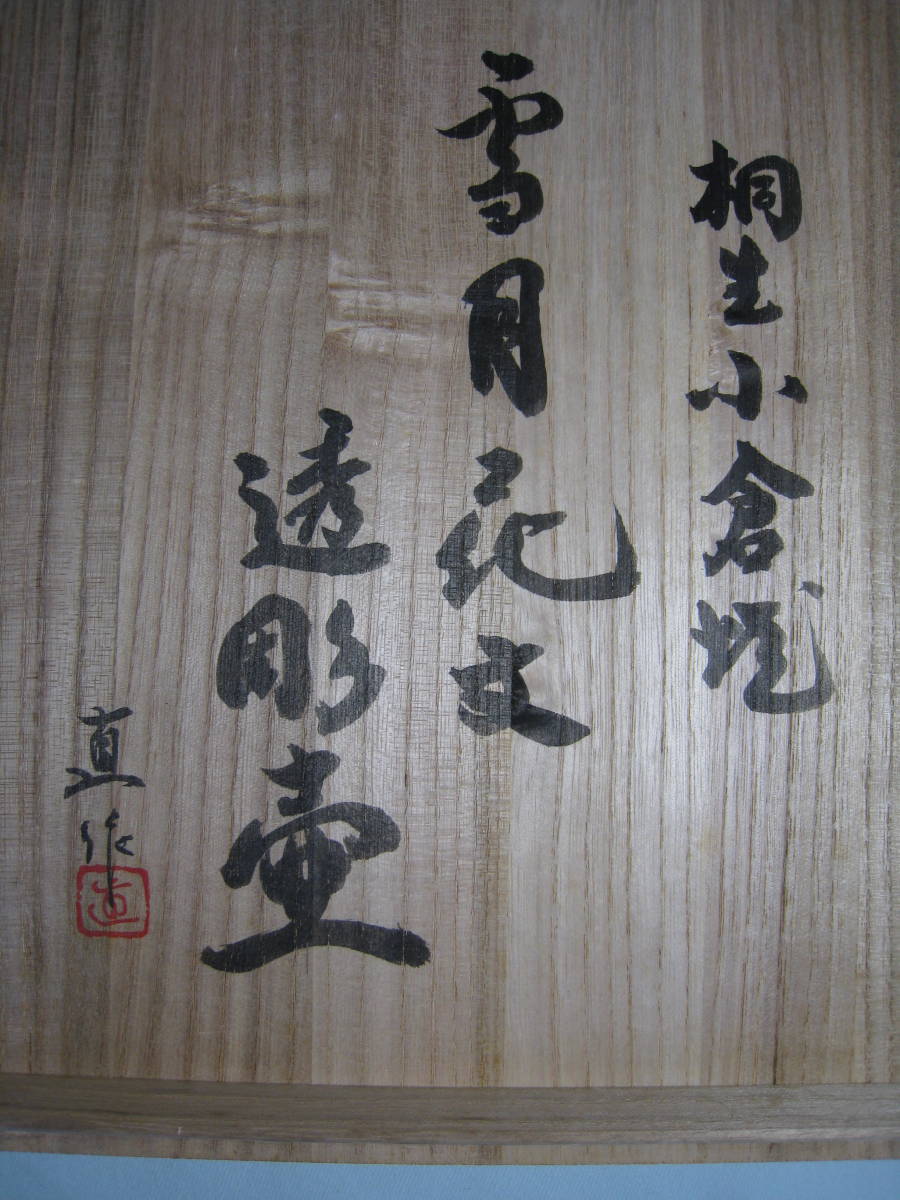 桐生小倉焼
雪月花文
透彫壷
直作
直